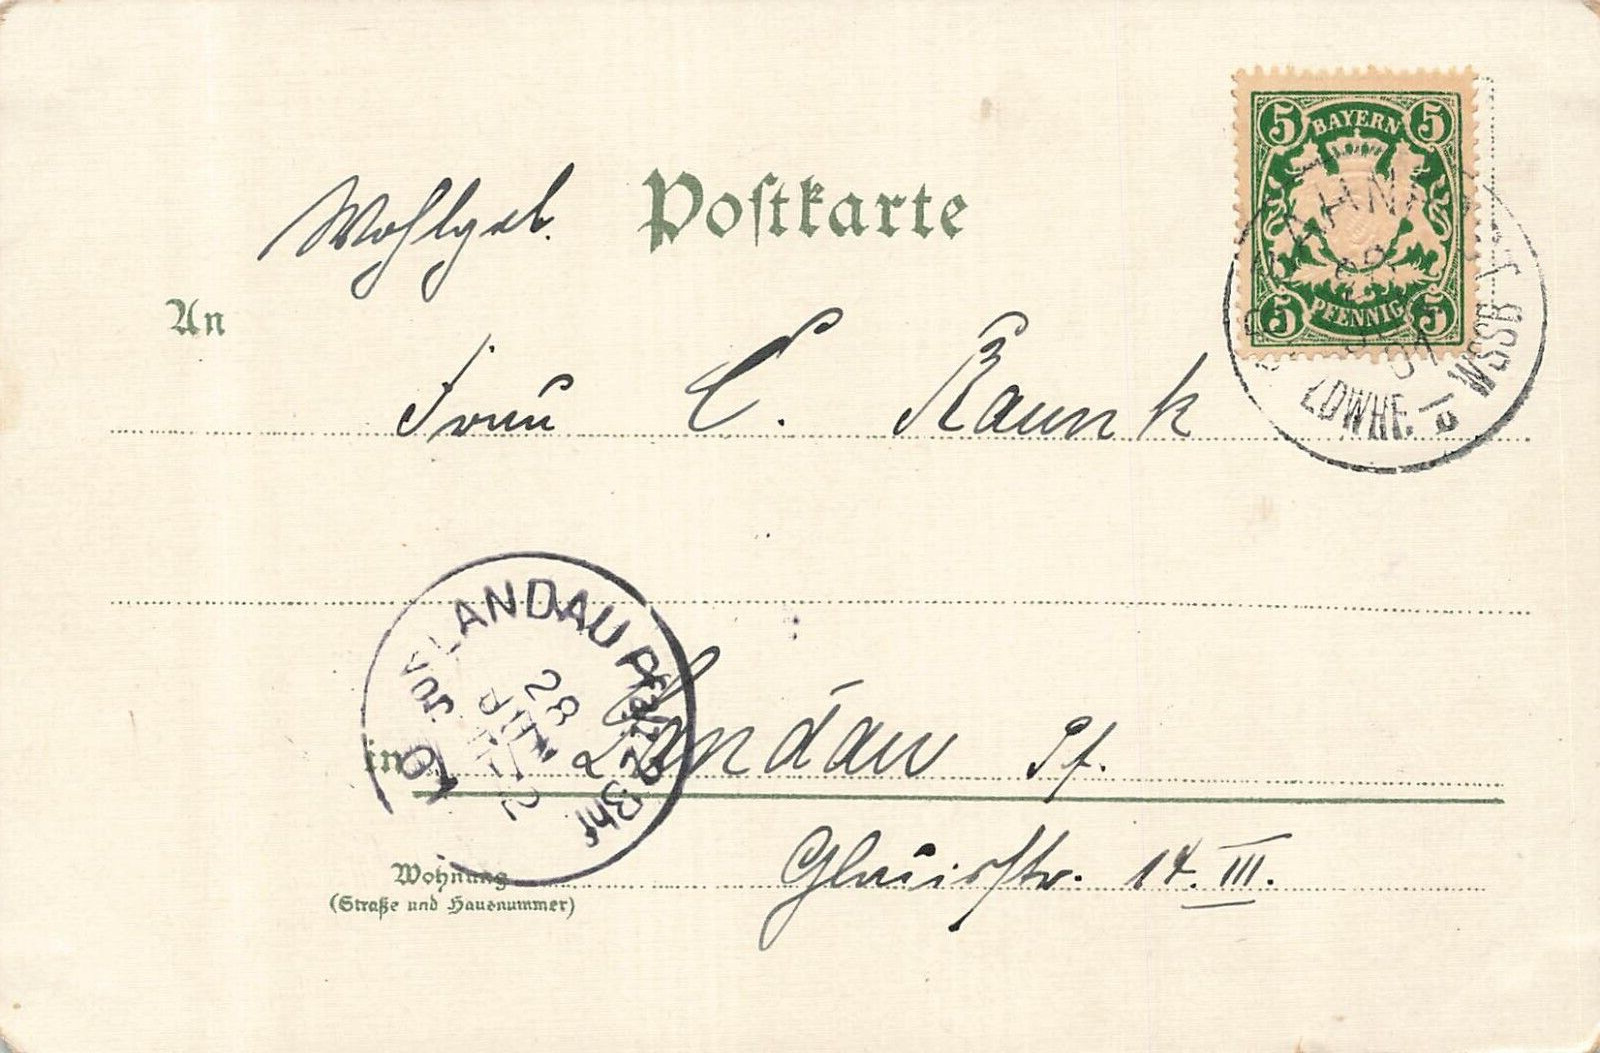 Wohlgeb. Postkarte
5 BAYERN 5
5 PFENNIG 5
An
Frau C. Raunk
BAHNP
28
01
ZDWHF. WSSB
LANDAU Pfalz
28
JUL
2-3 N
in Landau Pf.
Wohnung
(Straße und Hausnummer)
14. III.